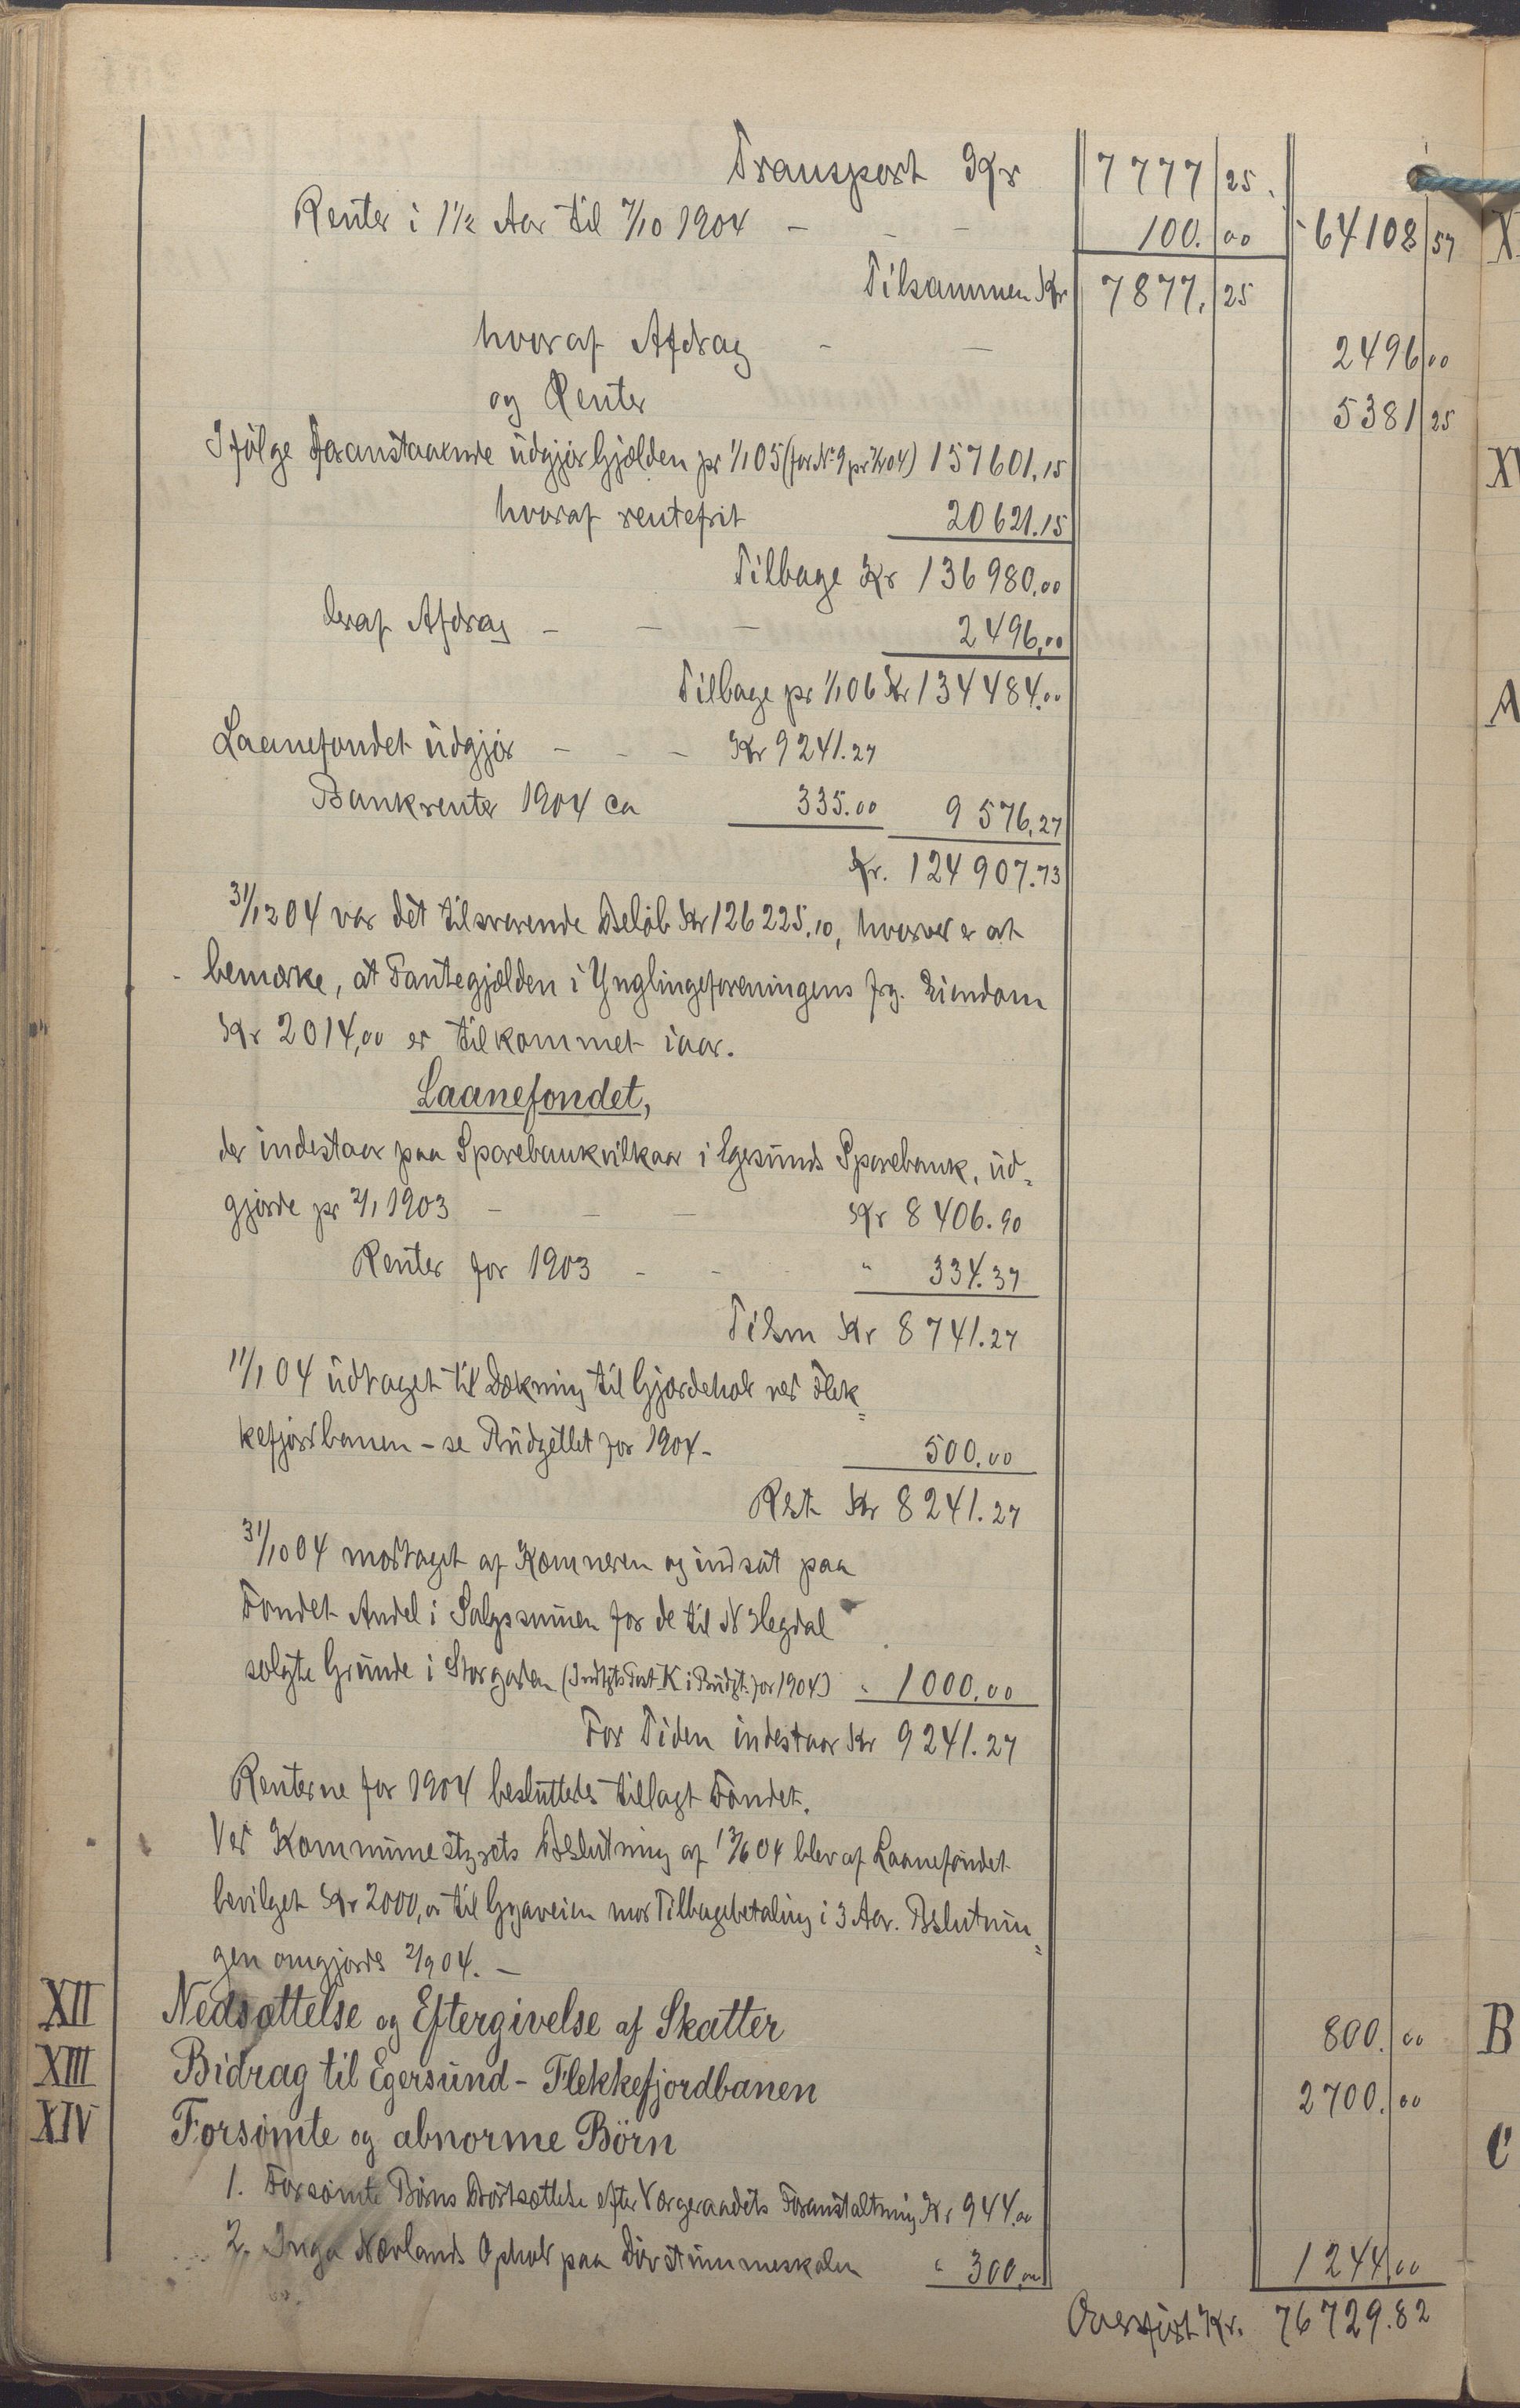 Transport Kr 7777 25
Renter i 1½ Aar til 1/10 1904 - - - 100. 00 64108 57
Tilsammen Kr 7877. 25
hvoraf Afdrag - - 2496 00
og Renter 5381 25
Ifølge foranstaaende udgjør Gjælden pr 1/1 05 (for No 9 pr 1/10 04) 157601.15
hvoraf rentefrit 20621.15
Tilbage Kr 136980.00
deraf Afdrag - - - 2496.00
Tilbage pr 1/1 06 Kr 134484.00
Laanefondet udgjør - - - Kr 9241.27
Bankrenter 1904 ca 335.00 9576.27
Kr. 124907.73
31/12 04 var det tilsvarende Beløb Kr 126225.10, hvorved er at
bemærke, at Pantegjælden i Ynglingeforeningens frg. Eiendom
Kr 2014,00 er tilkommet iaar.
Laanefondet,
der indestaar paa Sparebankvilkaar i Egersunds Sparebank, ud=
gjorde pr 2/1 1903 - - - Kr 8406.90
Renter for 1903 - - " 334.37
Tilsm Kr 8741.27
11/1 04 udtaget til Dækning til Gjærdehold ved Flek=
kefjordbanen - se Budgettet for 1904 - 500.00
Rest Kr 8241.27
31/10 04 modtaget af Kæmneren og indsat paa
Fondet Andel i Salgssummen for de til N Hegdal
solgte Grunde i Storgaden (Indtgts Post K i Budgt. for 1904) " 1000.00
For Tiden indestaar Kr 9241.27
Renterne for 1904 besluttedes tillagt Fondet.
Ved Kommunestyrets Beslutning af 13/6 04 blev af Laanefondet
bevilget Kr 2000,00 til Gyaveien mod Tilbagebetaling i 3 Aar. Beslutnin=
gen omgjordes 2/9 04. -
XII Nedsættelse og Eftergivelse af Skatter 800. 00
XIII Bidrag til Egersund - Flekkefjordbanen 2700. 00
XIV Forsømte og abnorme Børn
1. Forsømte Børns Bortsættelse efter Værgeraadets Foranstaltning Kr 944.00
2. Inga Nævlands Ophold paa Døvstummeskolen " 300,00 1244,00
Overført Kr. 76729.82
X
XV
A
B
C